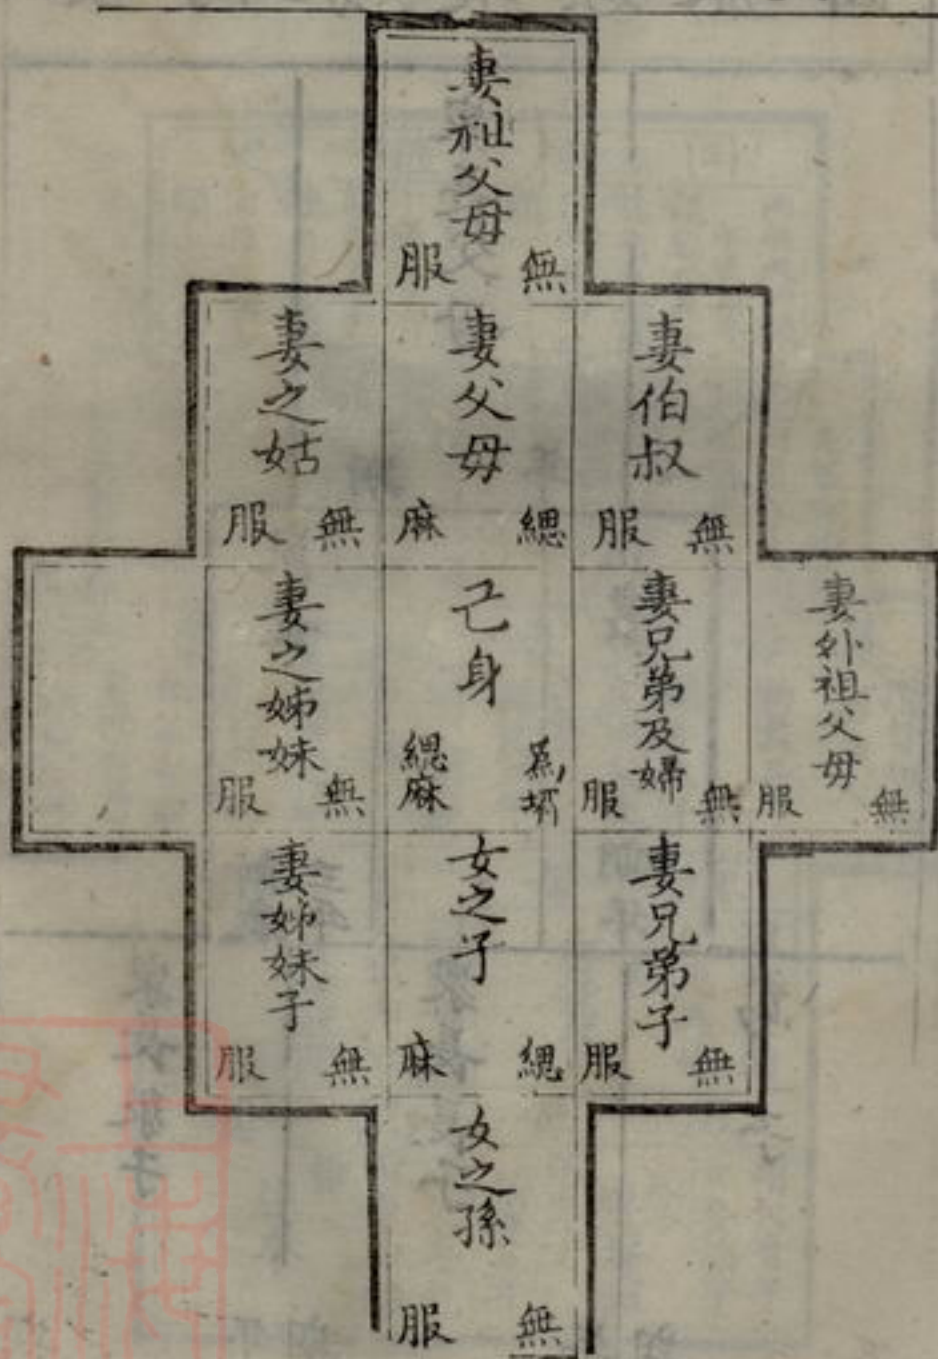 妻祖父母
無服
妻伯叔
無服
妻父母
緦麻
妻之姑
無服
妻外祖父母
無服
妻兄弟及婦
無服
己身
為壻緦麻
妻之姊妹
無服
妻兄弟子
無服
女之子
緦麻
妻姊妹子
無服
女之孫
無服